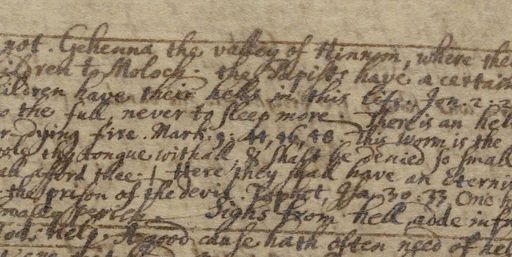 not. Gehenna the valley of Hinnom, where the
ildren to Moloch the Papists have a certain
ildren have their hells in this life. Jon. 2. 2
to the full, never to sleep more There is an hel
r Dying fire. Mark. 9. 44, 46, 48 this worm is the
thy tongue withall, & shalt be denied so small
all afford thee, Here they shall have an Eterny
the prison of the devil Tophet, Isa. 30. 33, One
small Sighs from hell,
Hell. Help. A good cause hath often need of hel